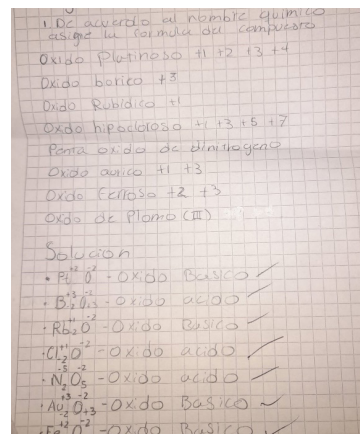 1. De acuerdo al nombre químico
asigne la formula del compuesto
Oxido Platinoso +1 +2 +3 +4
Oxido borico +3
Oxido Rubidico +1
Oxdo hipocloroso +1 +3 +5 +7
Penta oxido de dinitrogeno
Oxdo aurico +1 +3
Oxdo ferroso +2 +3
Oxdo de Plomo (III)
Solucion
• Pt+2 O-2 - Oxido Basico ✓
• B2+3 O3-2 - Oxido acido ✓
• Rb2+1 O-2 - Oxido Basico ✓
• Cl2+1 O-2 - Oxido acido ✓
• N2-5 O5-2 - Oxido acido ✓
• Au2+3 O+3-2 - Oxido Basico ✓
• Fe+2 O-2 - Oxido Basico ✓